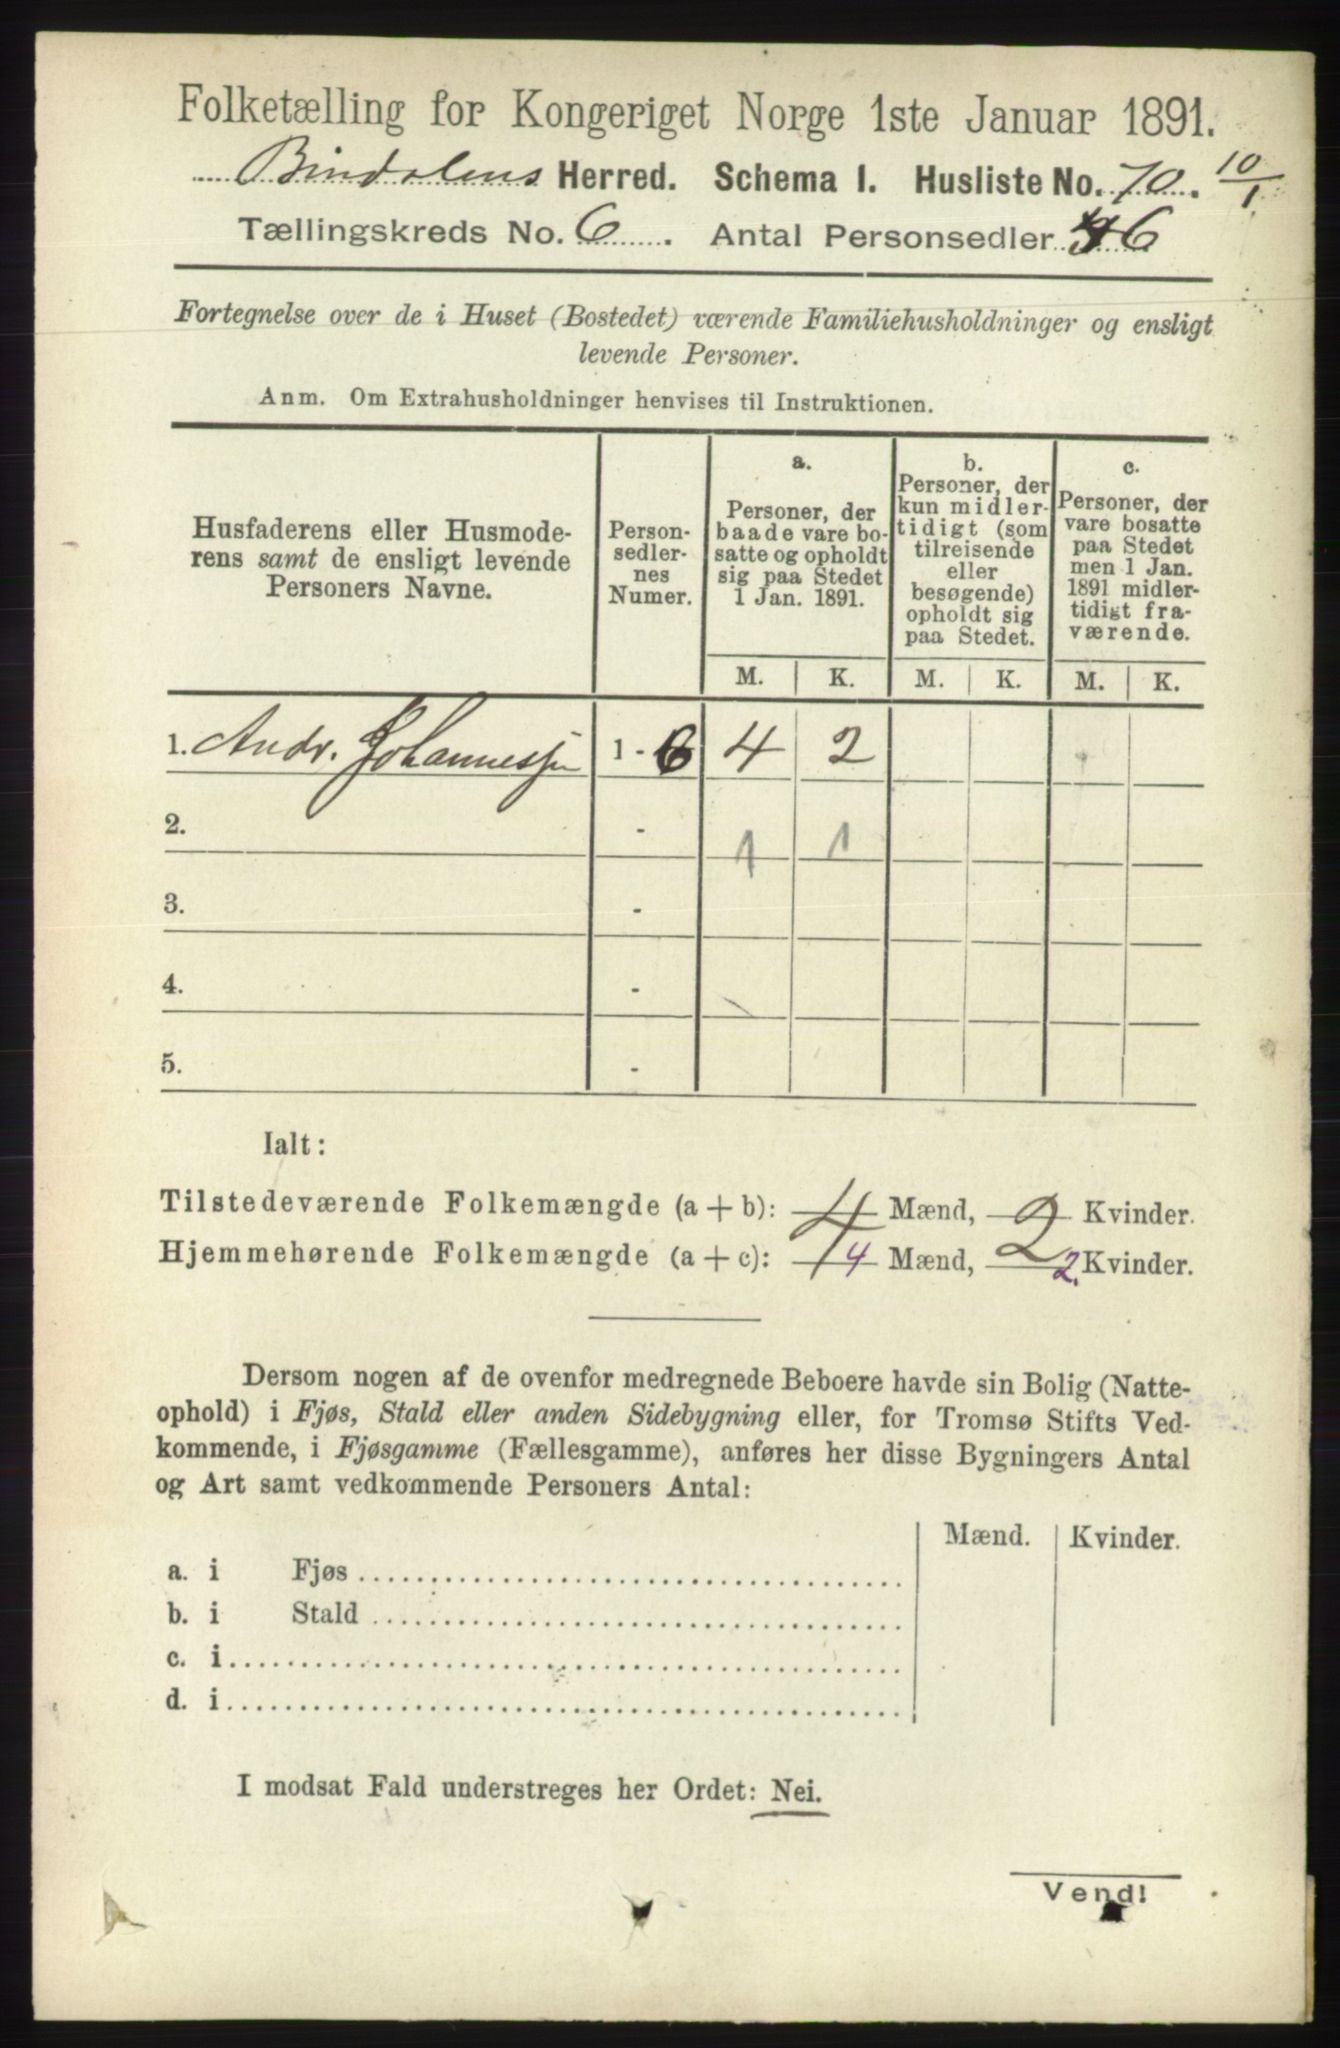 Folketælling for Kongeriget Norge 1ste Januar 1891.
Bindalens Herred. Schema I. Husliste No. 70. 10/1
Tællingskreds No. 6. Antal Personsedler 6
Fortegnelse over de i Huset (Bostedet) værende Familiehusholdninger og ensligt
levende Personer.
Anm. Om Extrahusholdninger henvises til Instruktionen.
Husfaderens eller Husmode-
rens samt de ensligt levende
Personers Navne.
Person-
sedler-
nes
Numer.
a.
Personer, der
baade vare bo-
satte og opholdt
sig paa Stedet
1 Jan. 1891.
b.
Personer, der
kun midler-
tidigt (som
tilreisende
eller
besøgende)
opholdt sig
paa Stedet.
c.
Personer, der
vare bosatte
paa Stedet
men 1 Jan.
1891 midler-
tidigt fra-
værende.
M. K. M. K. M. K.
1. Andr. Johannessen 1 - 6 4 2
2. - 1 1
3. -
4. -
5. -
Ialt:
Tilstedeværende Folkemængde (a + b): 4 Mænd, 2 Kvinder.
Hjemmehørende Folkemængde (a + c): 4 Mænd, 2. Kvinder.
Dersom nogen af de ovenfor medregnede Beboere havde sin Bolig (Natte-
ophold) i Fjøs, Stald eller anden Sidebygning eller, for Tromsø Stifts Ved-
kommende, i Fjøsgamme (Fællesgamme), anføres her disse Bygningers Antal
og Art samt vedkommende Personers Antal:
Mænd. Kvinder.
a. i Fjøs
b. i Stald
c. i
d. i
I modsat Fald understreges her Ordet: Nei.
Vend!